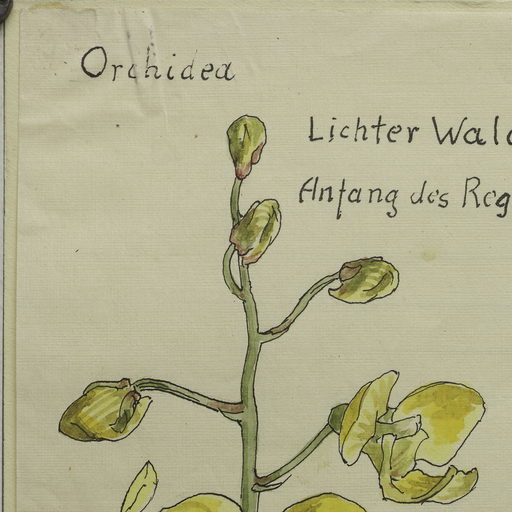 Orchidea
Lichter Wald
Anfang des Reg